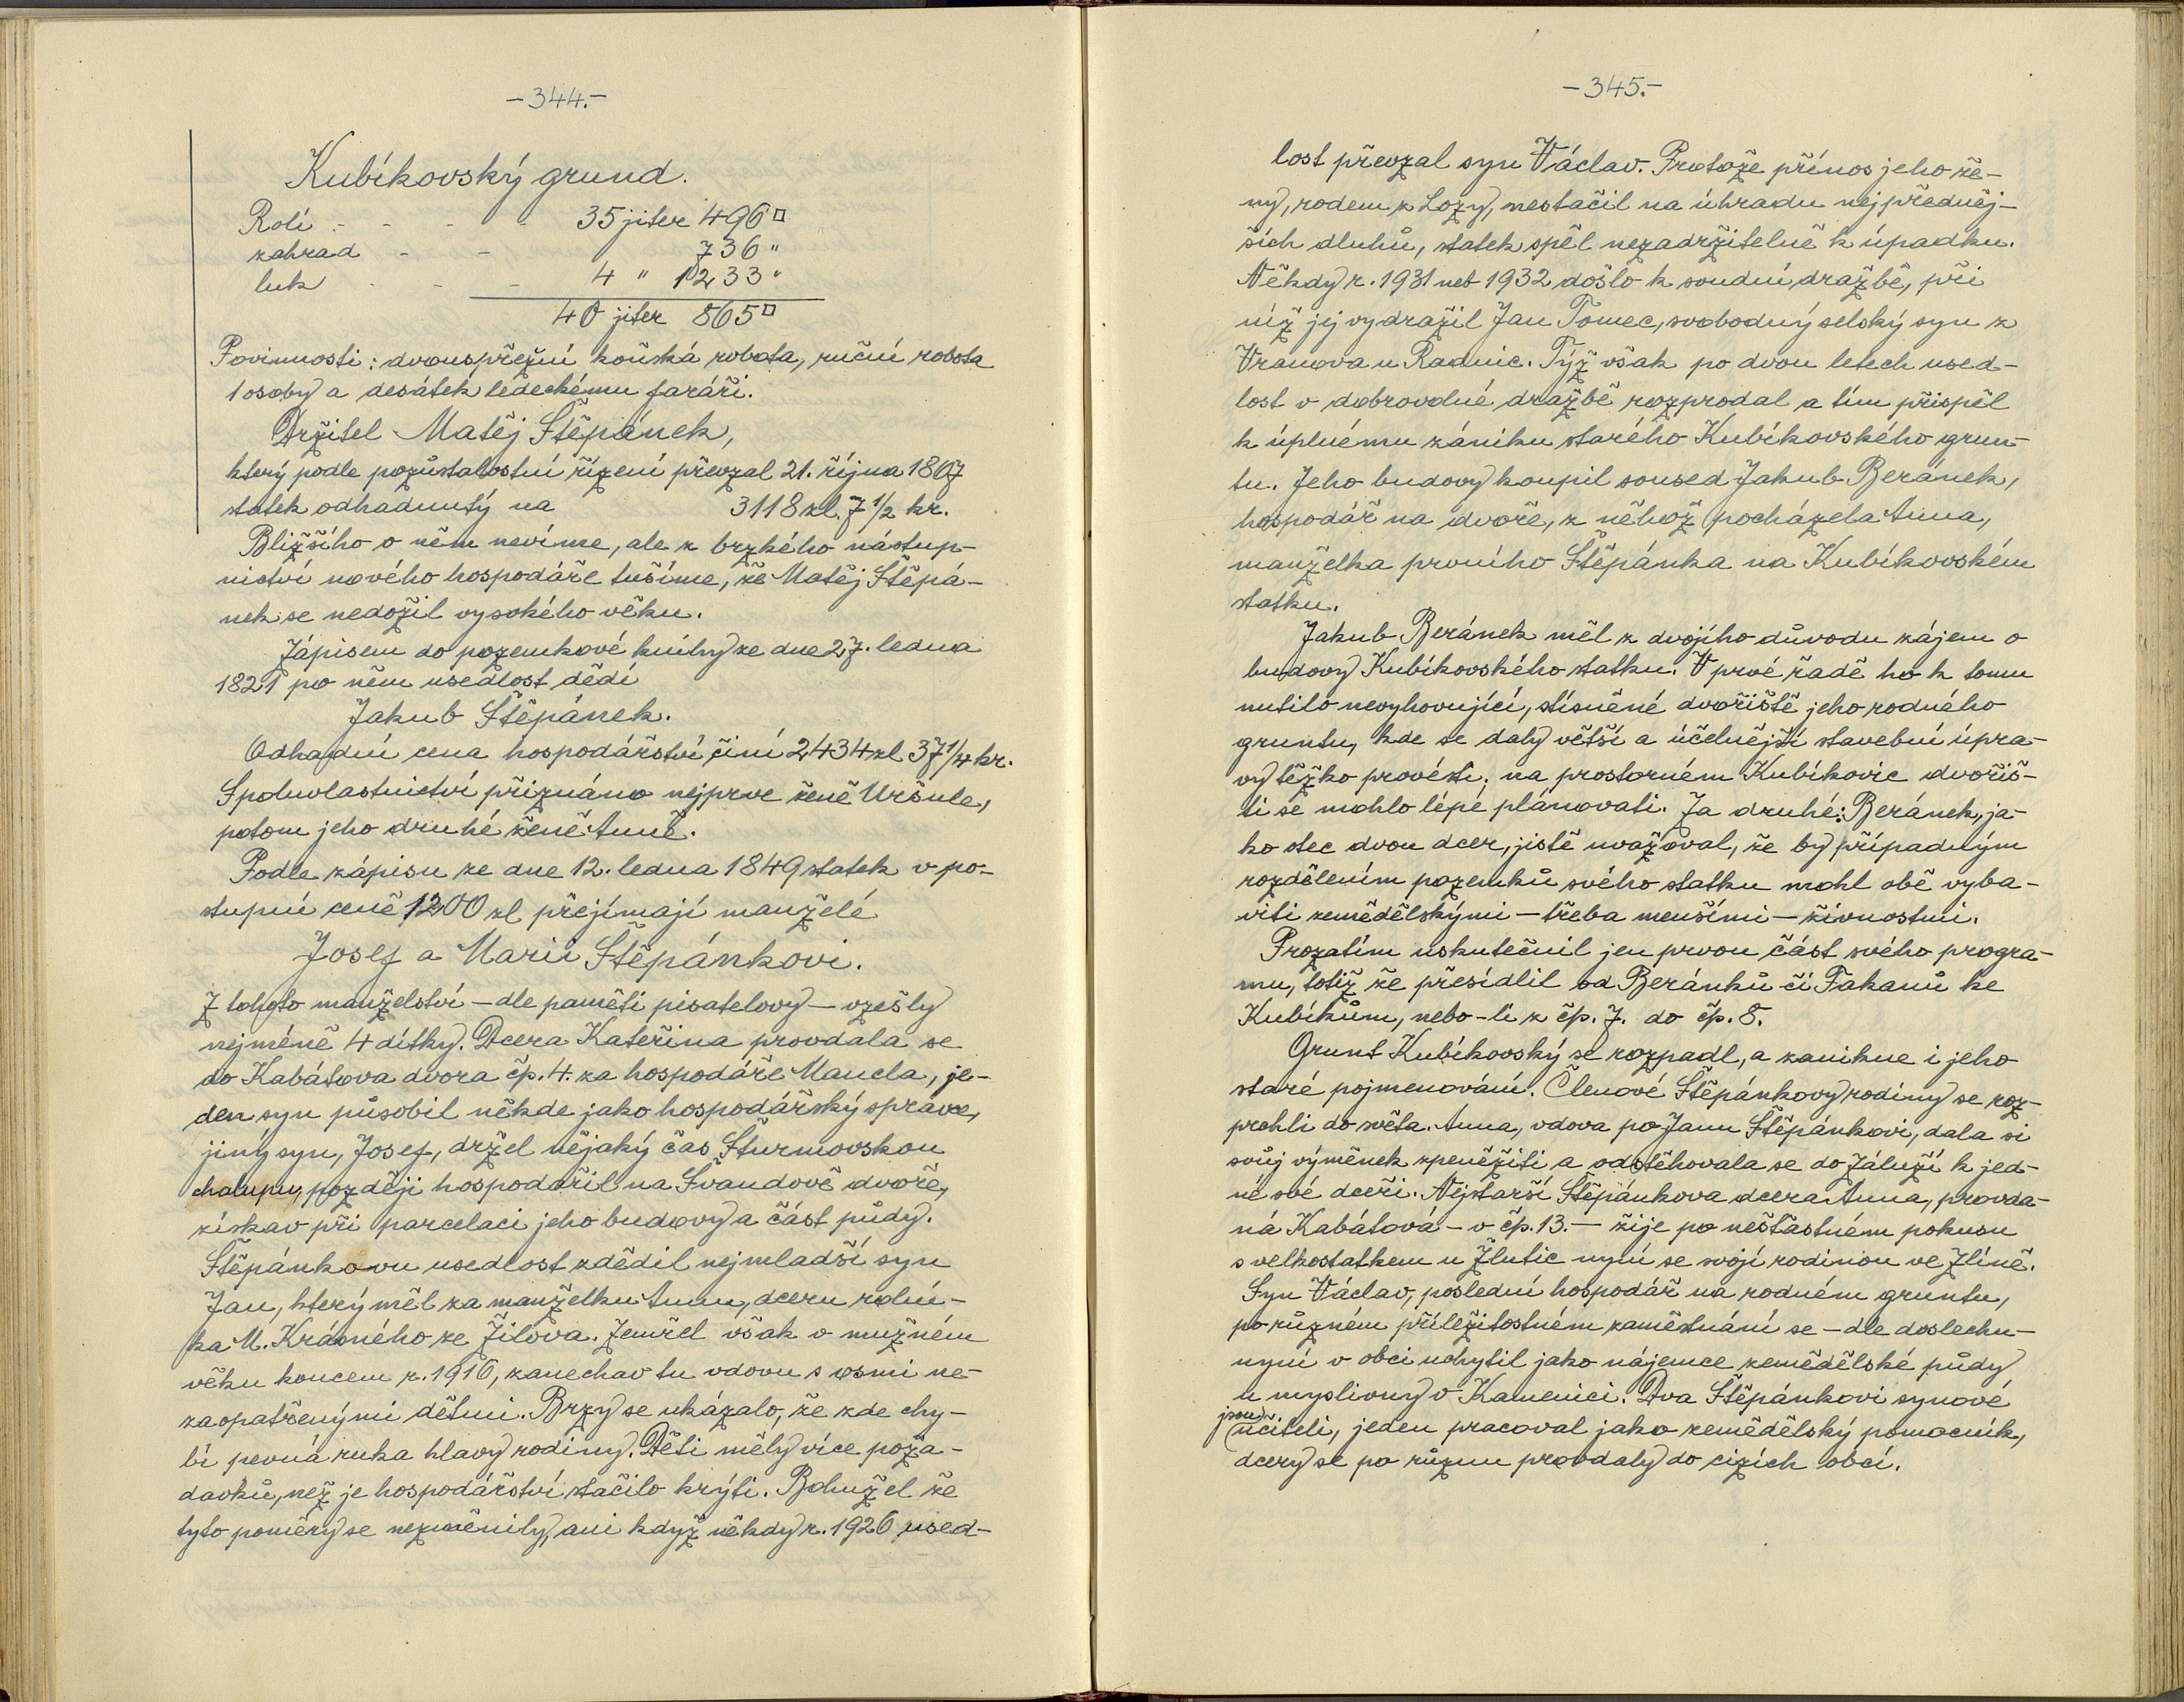 -344.-
Kubíkovský grund.
Rolí - - - - 35 jiter 496□
zahrad - - 736 "
luk - - - 4 " 1233 "
40 jiter 865□
Povinnosti: dvouspřežní koňská robota, ruční robota
1 osoby a desátek ledeckému faráři.
Držitel Matěj Štěpánek,
který podle pozůstalostní řízení převzal 21. října 1807
statek odhadnutý na 3118 zl. 7 1/2 kr.
Bližšího o něm nevíme, ale z brzkého nástup-
nictví nového hospodáře tušíme, že Matěj Štěpá-
nek se nedožil vysokého věku.
Zápisem do pozemkové knihy ze dne 27. ledna
1821 po něm usedlost dědí
Jakub Štěpánek.
Odhadní cena hospodářství činí 2434 zl 37 1/4 kr.
Spoluvlastnictví přiznáno nejprve ženě Uršule,
potom jeho druhé ženě Anně.
Podle zápisu ze dne 12. ledna 1849 statek v po-
stupní ceně 1200 zl přejímají manželé
Josef a Marii Štěpánkovi.
Z tohoto manželství - dle paměti pisatelovy - vzešly
nejméně 4 dítky. Dcera Kateřina provdala se
do Kabátova dvora čp. 4. za hospodáře Mancla, je-
den syn působil někde jako hospodářský správce,
jiný syn, Josef, držel nějaký čas Šturmovskou
chalupu, později hospodařil na Švandově dvoře,
získav při parcelaci jeho budovy a část půdy.
Štěpánkovu usedlost zdědil nejmladší syn
Jan, který měl za manželku Annu, dceru rolní-
ka M. Krásného ze Žilova. Zemřel však v mužném
věku koncem r. 1916, zanechav tu vdovu s osmi ne-
zaopatřenými dětmi. Brzy se ukázalo, že zde chy-
bí pevná ruka hlavy rodiny. Děti měly více poža-
davků, než je hospodářství stačilo krýti. Bohužel že
tyto poměry se nezměnily, ani když někdy r. 1926 used-
-345.-
lost převzal syn Václav. Protože přínos jeho že-
ny, rodem z Lozy, nestačil na úhradu nejpředněj-
ších dluhů, statek spěl nezadržitelně k úpadku.
Někdy r. 1931 neb 1932 došlo k soudní dražbě, při
níž jej vydražil Jan Tomec, svobodný selský syn z
Vranova u Radnic. Týž však po dvou letech used-
lost v dobrovolné dražbě rozprodal a tím přispěl
k úplnému zániku starého Kubíkovského grun-
tu. Jeho budovy koupil soused Jakub Beránek,
hospodář na dvoře, z něhož pocházela Anna,
manželka prvního Štěpánka na Kubíkovském
statku.
Jakub Beránek měl z dvojího důvodu zájem o
budovy Kubíkovského statku. V prvé řadě ho k tomu
nutilo nevyhovující, stísněné dvořiště jeho rodného
gruntu, kde se daly větší a účelnější stavební úpra-
vy těžko provésti; na prostorném Kubíkovic dvořiš-
ti se mohlo lépé plánovati. Za druhé: Beránek, ja-
ko otec dvou dcer, jistě uvažoval, že by případným
rozdělením pozemků svého statku mohl obě vyba-
viti zemědělskými - třeba menšími - živnostmi.
Prozatím uskutečnil jen prvou část svého progra-
mu, totiž že přesídlil od Beránků či Fakanů ke
Kubíkům, nebo-li z čp. 7. do čp. 8.
Grunt Kubíkovský se rozpadl, a zanikne i jeho
staré pojmenování. Členové Štěpánkovy rodiny se roz-
prchli do světa. Anna, vdova po Janu Štěpánkovi, dala si
svůj výměnek zpeněžiti a odstěhovala se do Záluží k jed-
né své dceři. Nejstarší Štěpánkova dcera Anna, provda-
ná Kabátová - v čp. 13. - žije po nešťastném pokusu
s velkostatkem u Žlutic nyní se svojí rodinou ve Zlíně.
Syn Václav, poslední hospodář na rodném gruntu,
po různém příležitostném zaměstnání se - dle doslechu -
nyní v obci uchytil jako nájemce zemědělské půdy
u myslivny v Kamenici. Dva Štěpánkovi synové
jsou učiteli, jeden pracoval jako zemědělský pomocník,
dcery se po různu provdaly do cizích obcí.